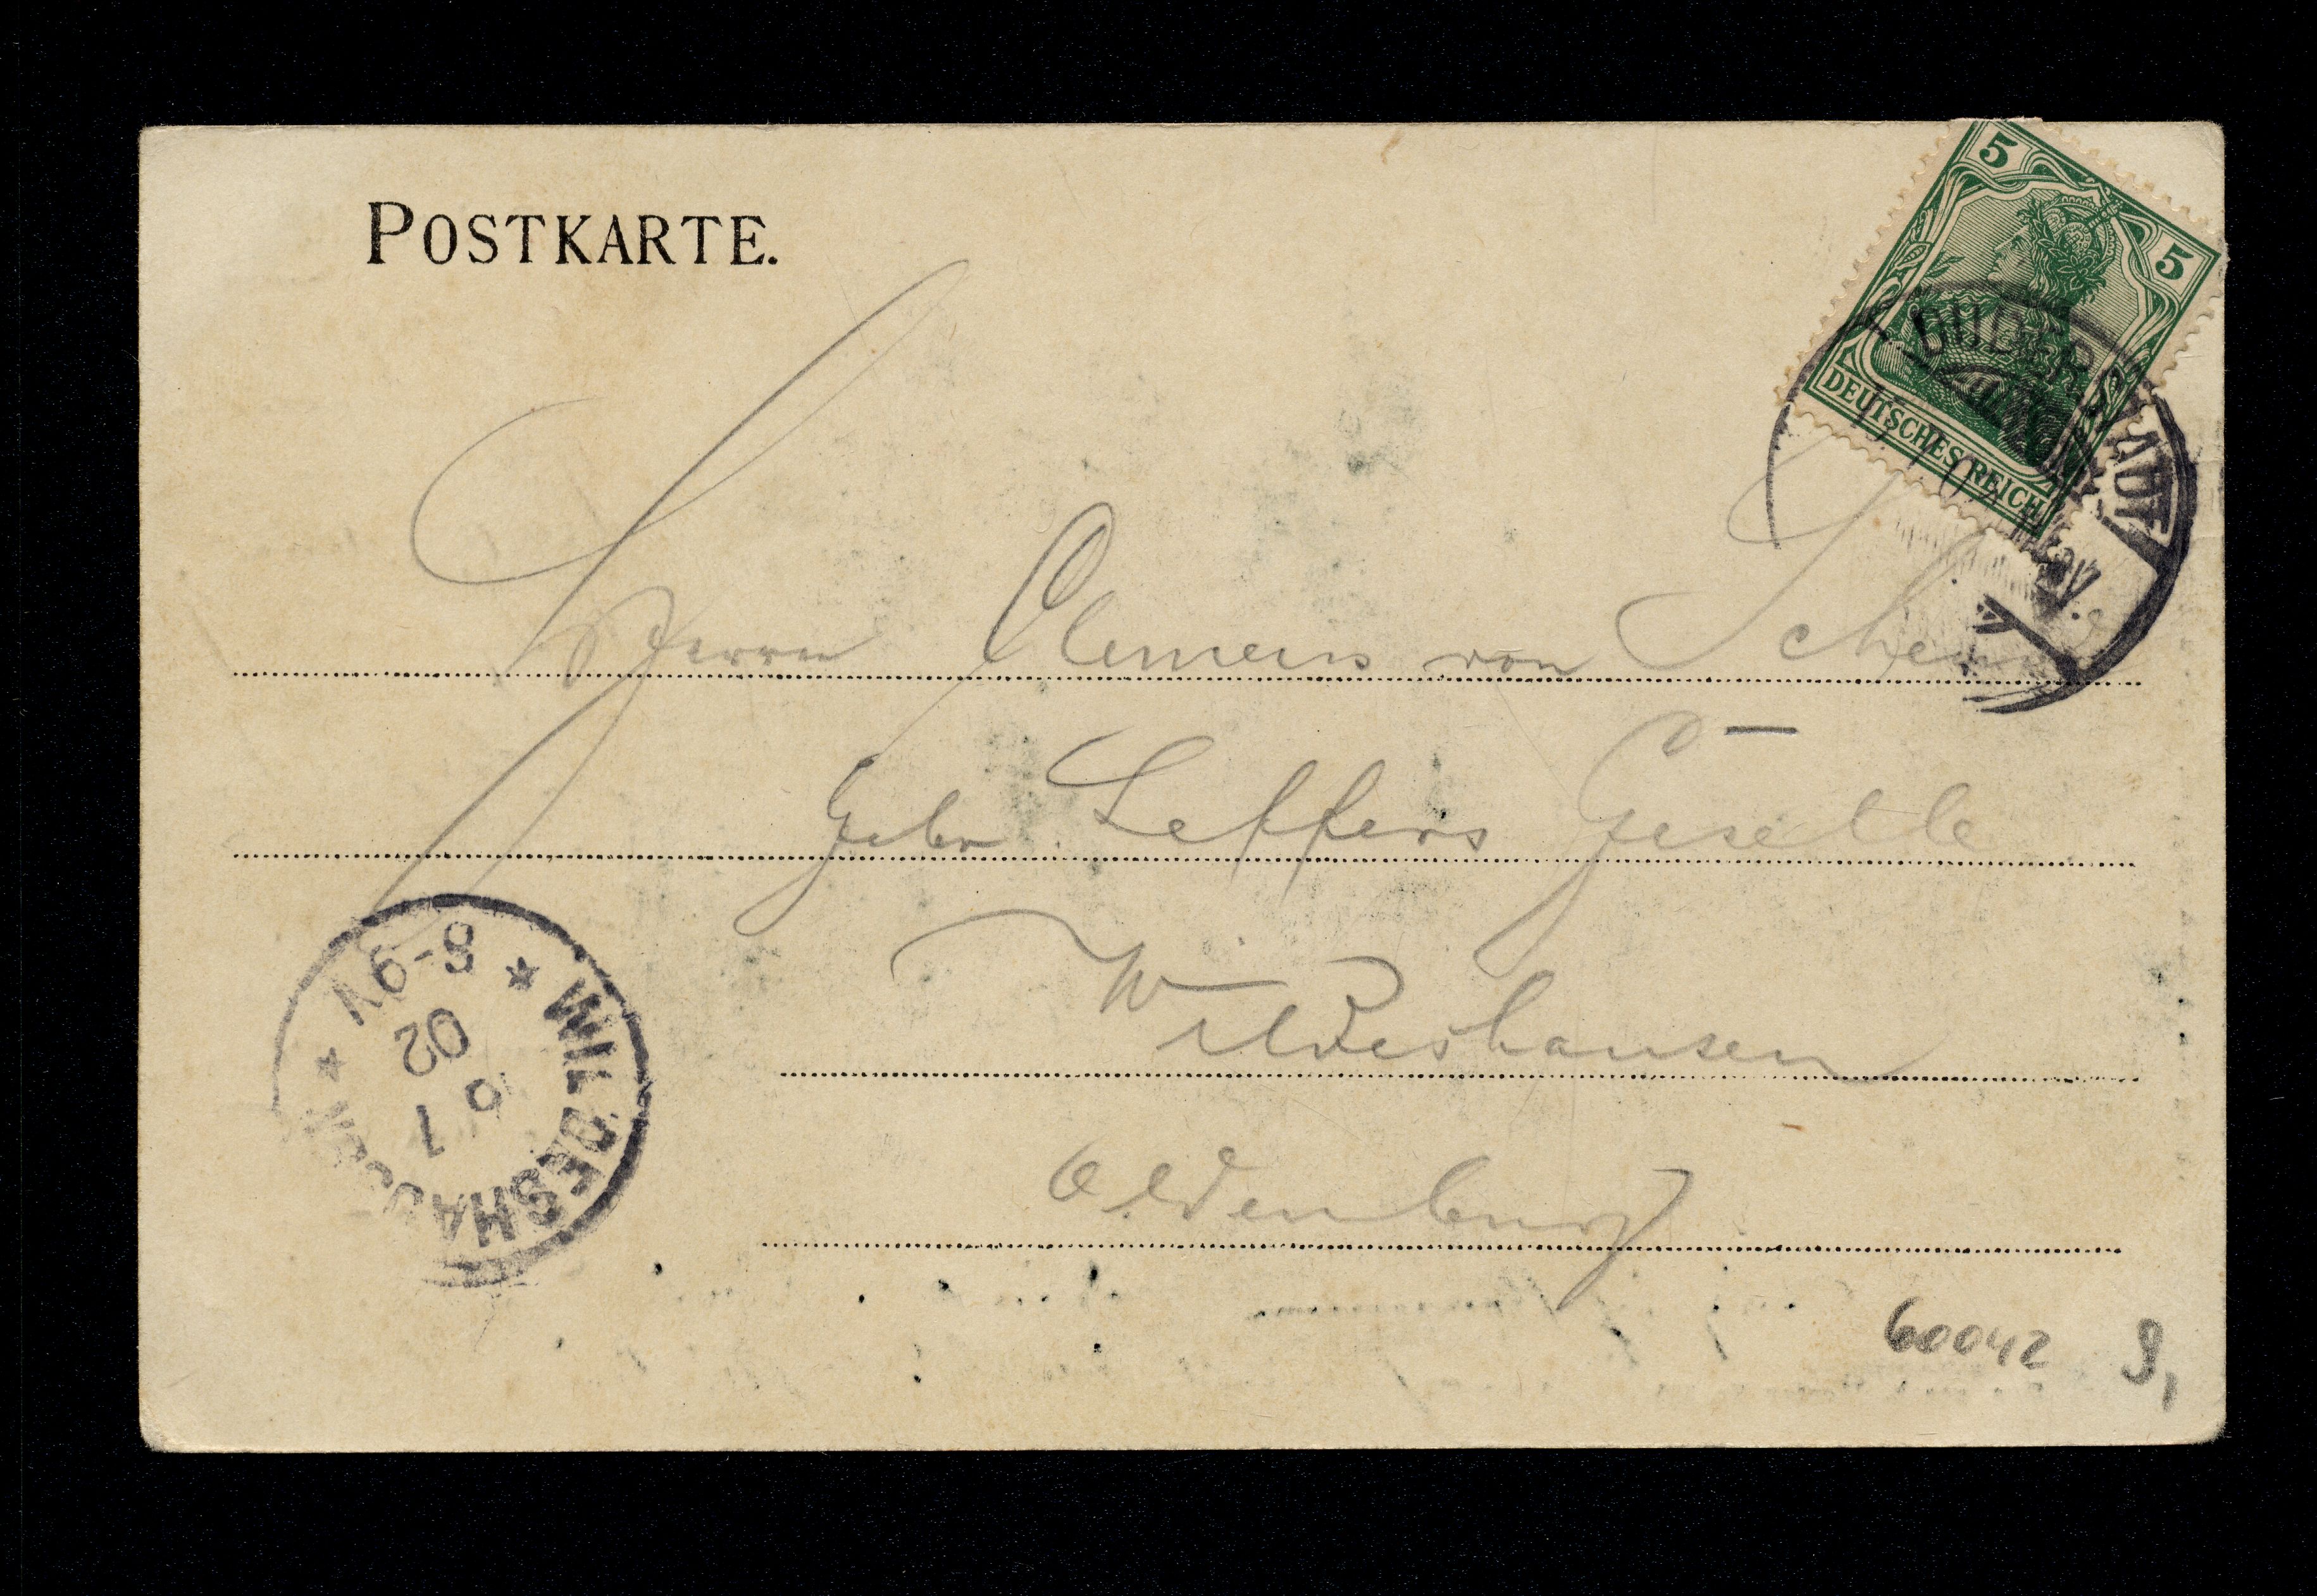 POSTKARTE.
5
5
DEUTSCHES REICH
DUDERSTADT
Herrn Clemens von
Gebr Leffers
Wildeshausen
Oldenburg
WILDESHAUSEN
6 1
02
8-9V
60042